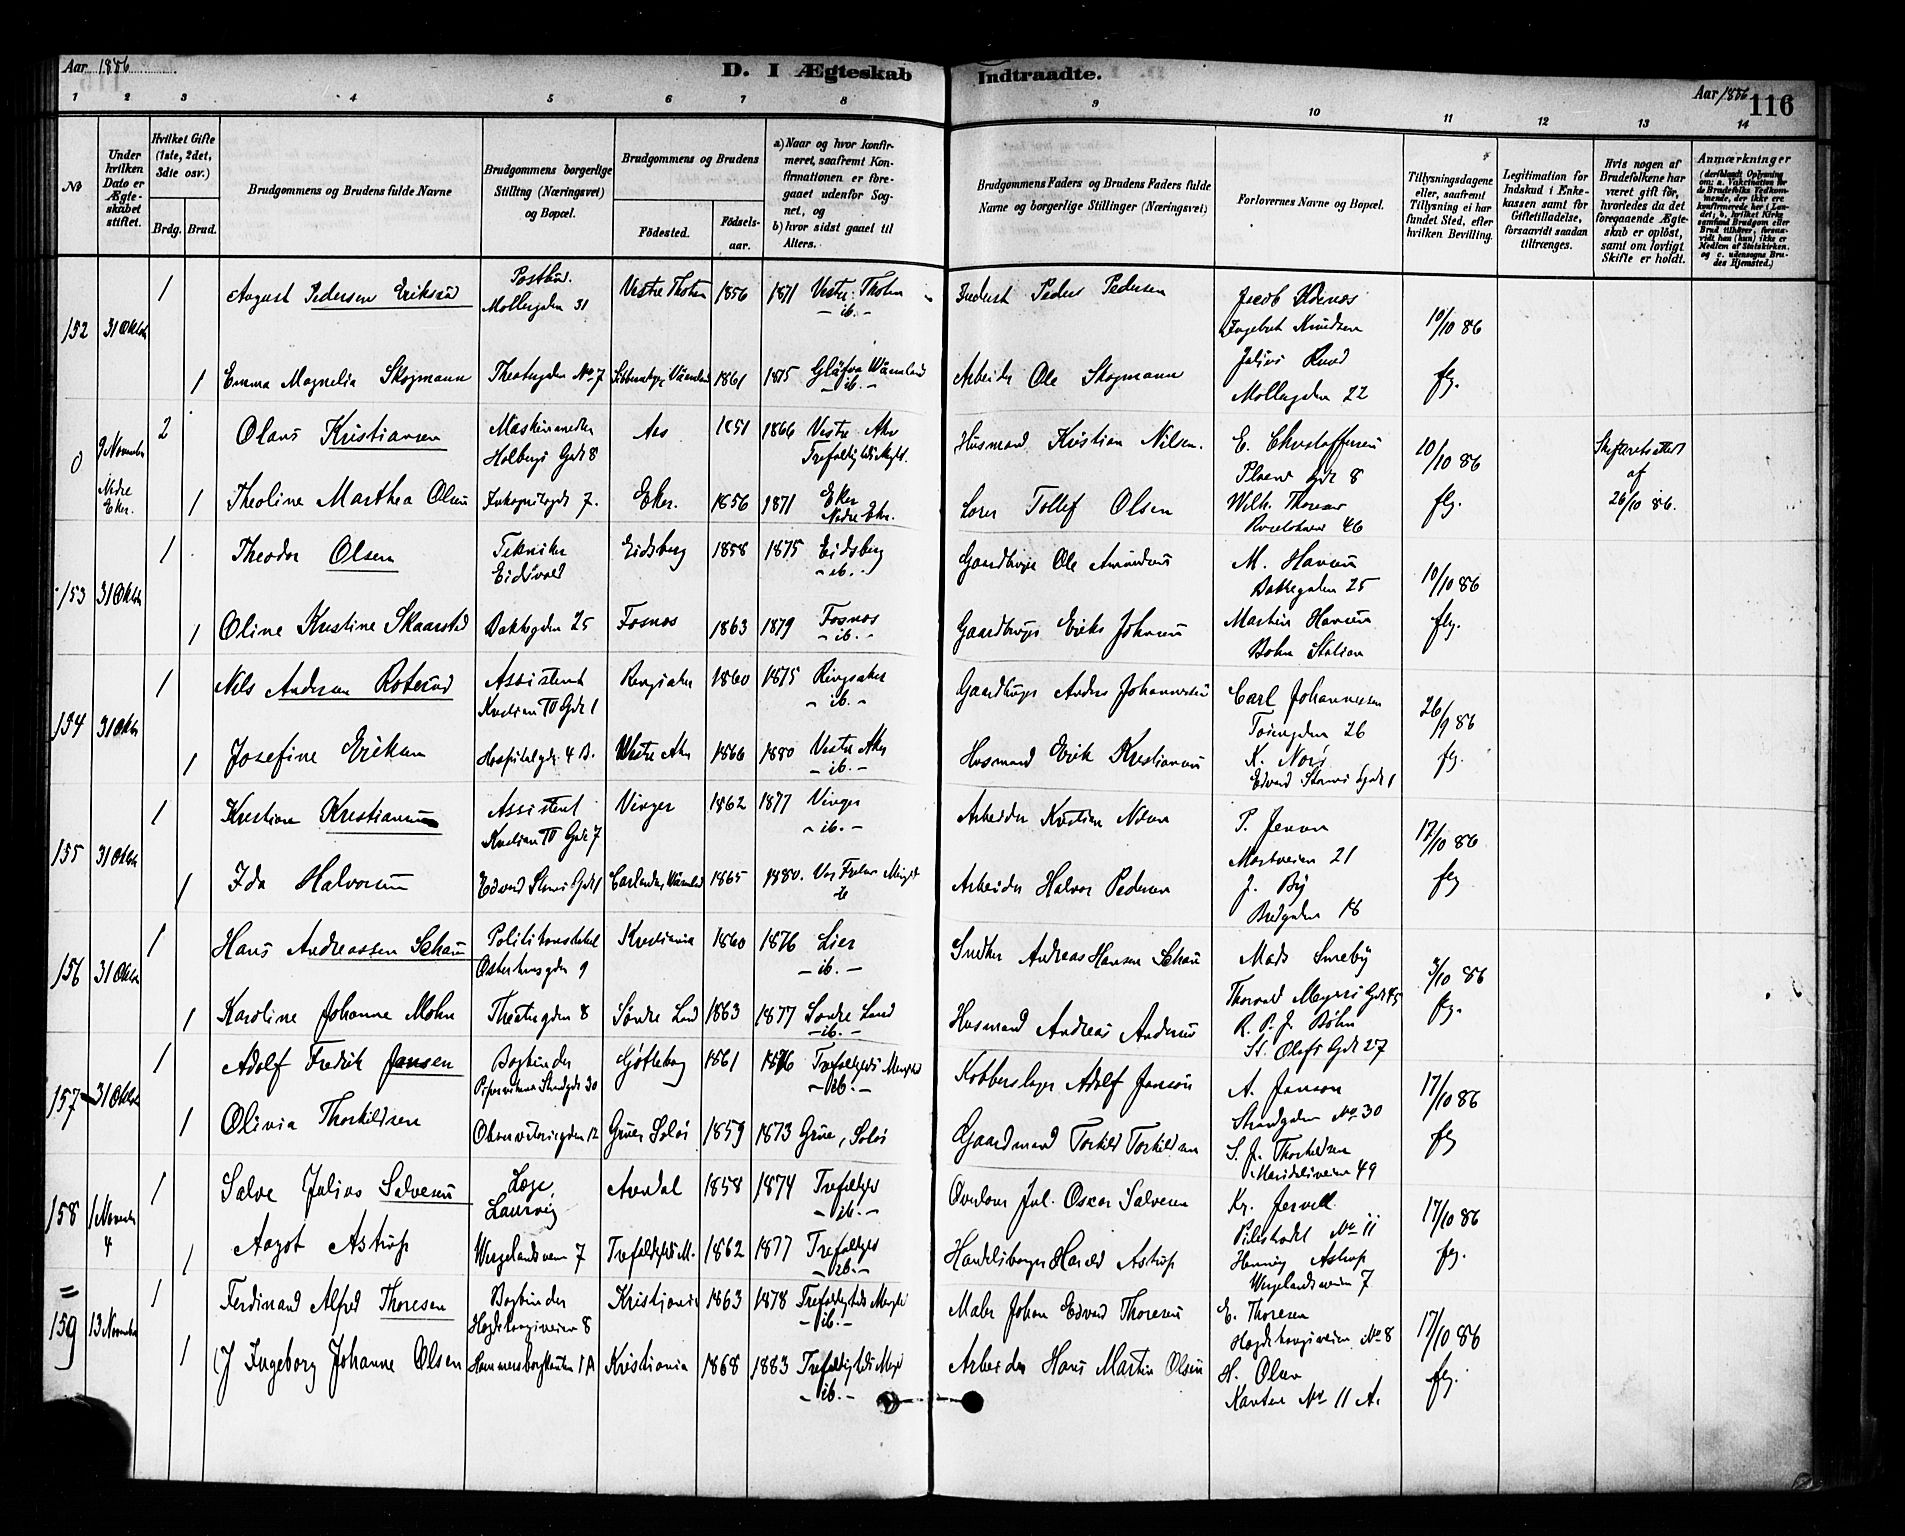 Aar 1886
D. I Ægteskab Indtraadte.
Aar 1886 116
1 2 3 4 5 6 7 8 9 10 11 12 13 14
No
Under hvilken Dato er Ægteskabet stiftet.
Hvilket Gifte (1ste, 2det, 3die osv.)
Brdg. Brud.
Brudgommens og Brudens fulde Navne
Brudgommens borgerlige Stilling (Næringsvei) og Bopæl.
Brudgommens og Brudens
Fødested.
Fødselsaar.
a) Naar og hvor konfirmeret, saafremt Konfirmationen er foregaaet udenfor Sognet, og
b) hvor sidst gaaet til Alters.
Brudgommens Faders og Brudens Faders fulde Navne og borgerlige Stillinger (Næringsvei)
Forlovernes Navne og Bopæl.
Tillysningsdagene eller, saafremt Tillysning ei har fundet Sted, efter hvilken Bevilling.
Legitimation for Indskud i Enkekassen samt for Giftetilladelse, forsaavidt saadan tiltrænges.
Hvis nogen af Brudefolkene har været gift før, hvorledes da det foregaaende Ægteskab er opløst, samt om lovligt Skifte er holdt.
Anmærkninger
152 31 Oktob 1 August Pedersen Eriksrud Postbud. Møllergaden 31 Vestre Thoten 1856 1871 Vestre Thoten - ib. - Peder Pedersen Jacob Ingebret Knudsen 10/10 86
1 Emma Magnelia Skogmann Theatergden No 7 1861 1875 Glafva Wärmland - ib. - Arbeider Ole Skogmann Julius Ruud Møllergden 22 flg.
0 9 November Nedre Eker. 2 Olaus Kristiansen Holbergs Gade 8 Aas 1851 1866 Vestre Aker Trefoldigheds Mght. Husmand Kristian Nilsen. E. Christoffersen Gde 8 10/10 86 Skifteretsattest af 26/10 86.
1 Theoline Marthea Olsen 7. Eker. 1856 1871 Eker Nedre Eker. Tollef Olsen Wilh. Thoresen 46 flg.
153 31 Oktob 1 Theodor Olsen Tekniker Eidsvold Eidsberg 1858 1875 Eidsberg - ib. - Gaardbruger Ole Amundsen M. Hansen Bakkegaden 25 10/10 86
1 Oline Kristine Skaarstad Bakkegden 25 Fosnes 1863 1879 Fosnes - ib. - Gaardbruger Eriks Johnsen Martin Hansen Bohn Station flg.
154 31 Oktob 1 Nils Andersen Roterud Assistent Kristian IV Gde 1 Ringsaker 1860 1875 Ringsaker - ib. - Gaardbruger Anders Johannessen Carl Johannesen Tøiengden 26 26/9 86
1 Josefine Eriksen Hospitalgd. 4 B. Vestre Aker 1866 1880 Vestre Aker - ib. - Husmand Erik Kristiansen K. Edvard Storms Gade 1 flg.
155 31 Oktob 1 Kristian Kristiansen Assistent Kristian IV Gde 7 Vinger 1862 1877 Vinger - ib. - Arbeider Kristian Nilsen P. Jensen 21 17/10 86
1 Ida Halvorsen Edvard Storms Gde 1 Wärmland 1865 1880. Vor Frelser Mengh ib Arbeider Halvor Pedersen J. By Bredgaden 18 flg
156 31 Oktob 1 Hans Andreassen Schau Østerhausgden 9 Kristiania 1860 1876 Lier - ib. - Snedker Andreas Hansen Schau Mads Smeby Thorvald Meyers Gde 45 /10 86
1 Karoline Johanne Mohn Theatergden 8 Søndre Land 1863 1877 Søndre Land - ib. - Husmand Andreas Andersen R. P. J. Bøhn St. Olafs Gde 27 flg.
157 31 Oktob 1 Adolf Fredrik Jansen Bogbinder Pipervikens Strandgde 30 Gøtteborg 1861 1876 Trefoldigheds Menghed - ib. - Kobberslager Adolf Janson A. Janson Strandgaden No 30 17/10 86
1 Olivia Thorkildsen Observatoriegden 12 Grue, Solør 1859 1873 Grue, Solør Gaardmand Torkild Torkildsen S. J. Thorkildsen Maridalsveien 49 flg
158 1 November 4 1 Salve Julius Salvesen Læge, Laurvig Arendal 1858 1874 Trefoldighed - ib. - Jul. Oscar Salvesen Kr. Jervell Pilestrædet No 11 17/10 86
1 Aagot Astrup Wergelandsveien 7 Trefoldigheds M. 1862 1877 Trefoldighed - ib. - Handelsborger Harald Astrup Henning Astrup Wergelandsveien 7 flg.
159 13 November 1 Ferdinand Alfred Thoresen Bogbinder Hegdehaugsveien 8 Kristiania 1863 1878 Trefoldigheds Menghd - ib. - Maler Johan Edvard Thoresen E. Thoresen Hegdehaugsveien No 8 17/10 86
1 J Ingeborg Johanne Olsen 11 A Kristiania 1868 1883 Trefoldigheds Mengd - ib. - Arbeider Hans Martin Olsen H. Olsen No 11 A. flg.